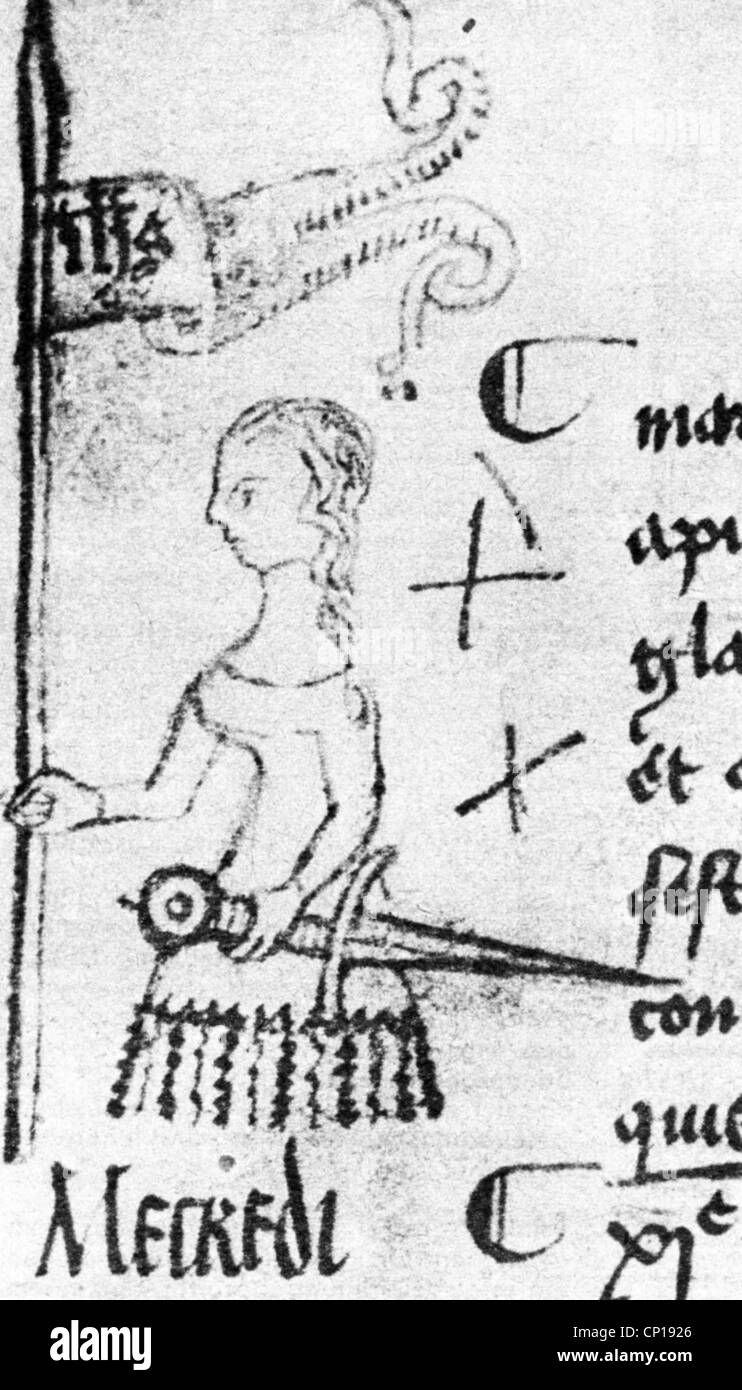 IHS
mar
apu
gla
et
fest
con
que
Mecredi
xie
alamy
Image ID: CP1926
www.alamy.com